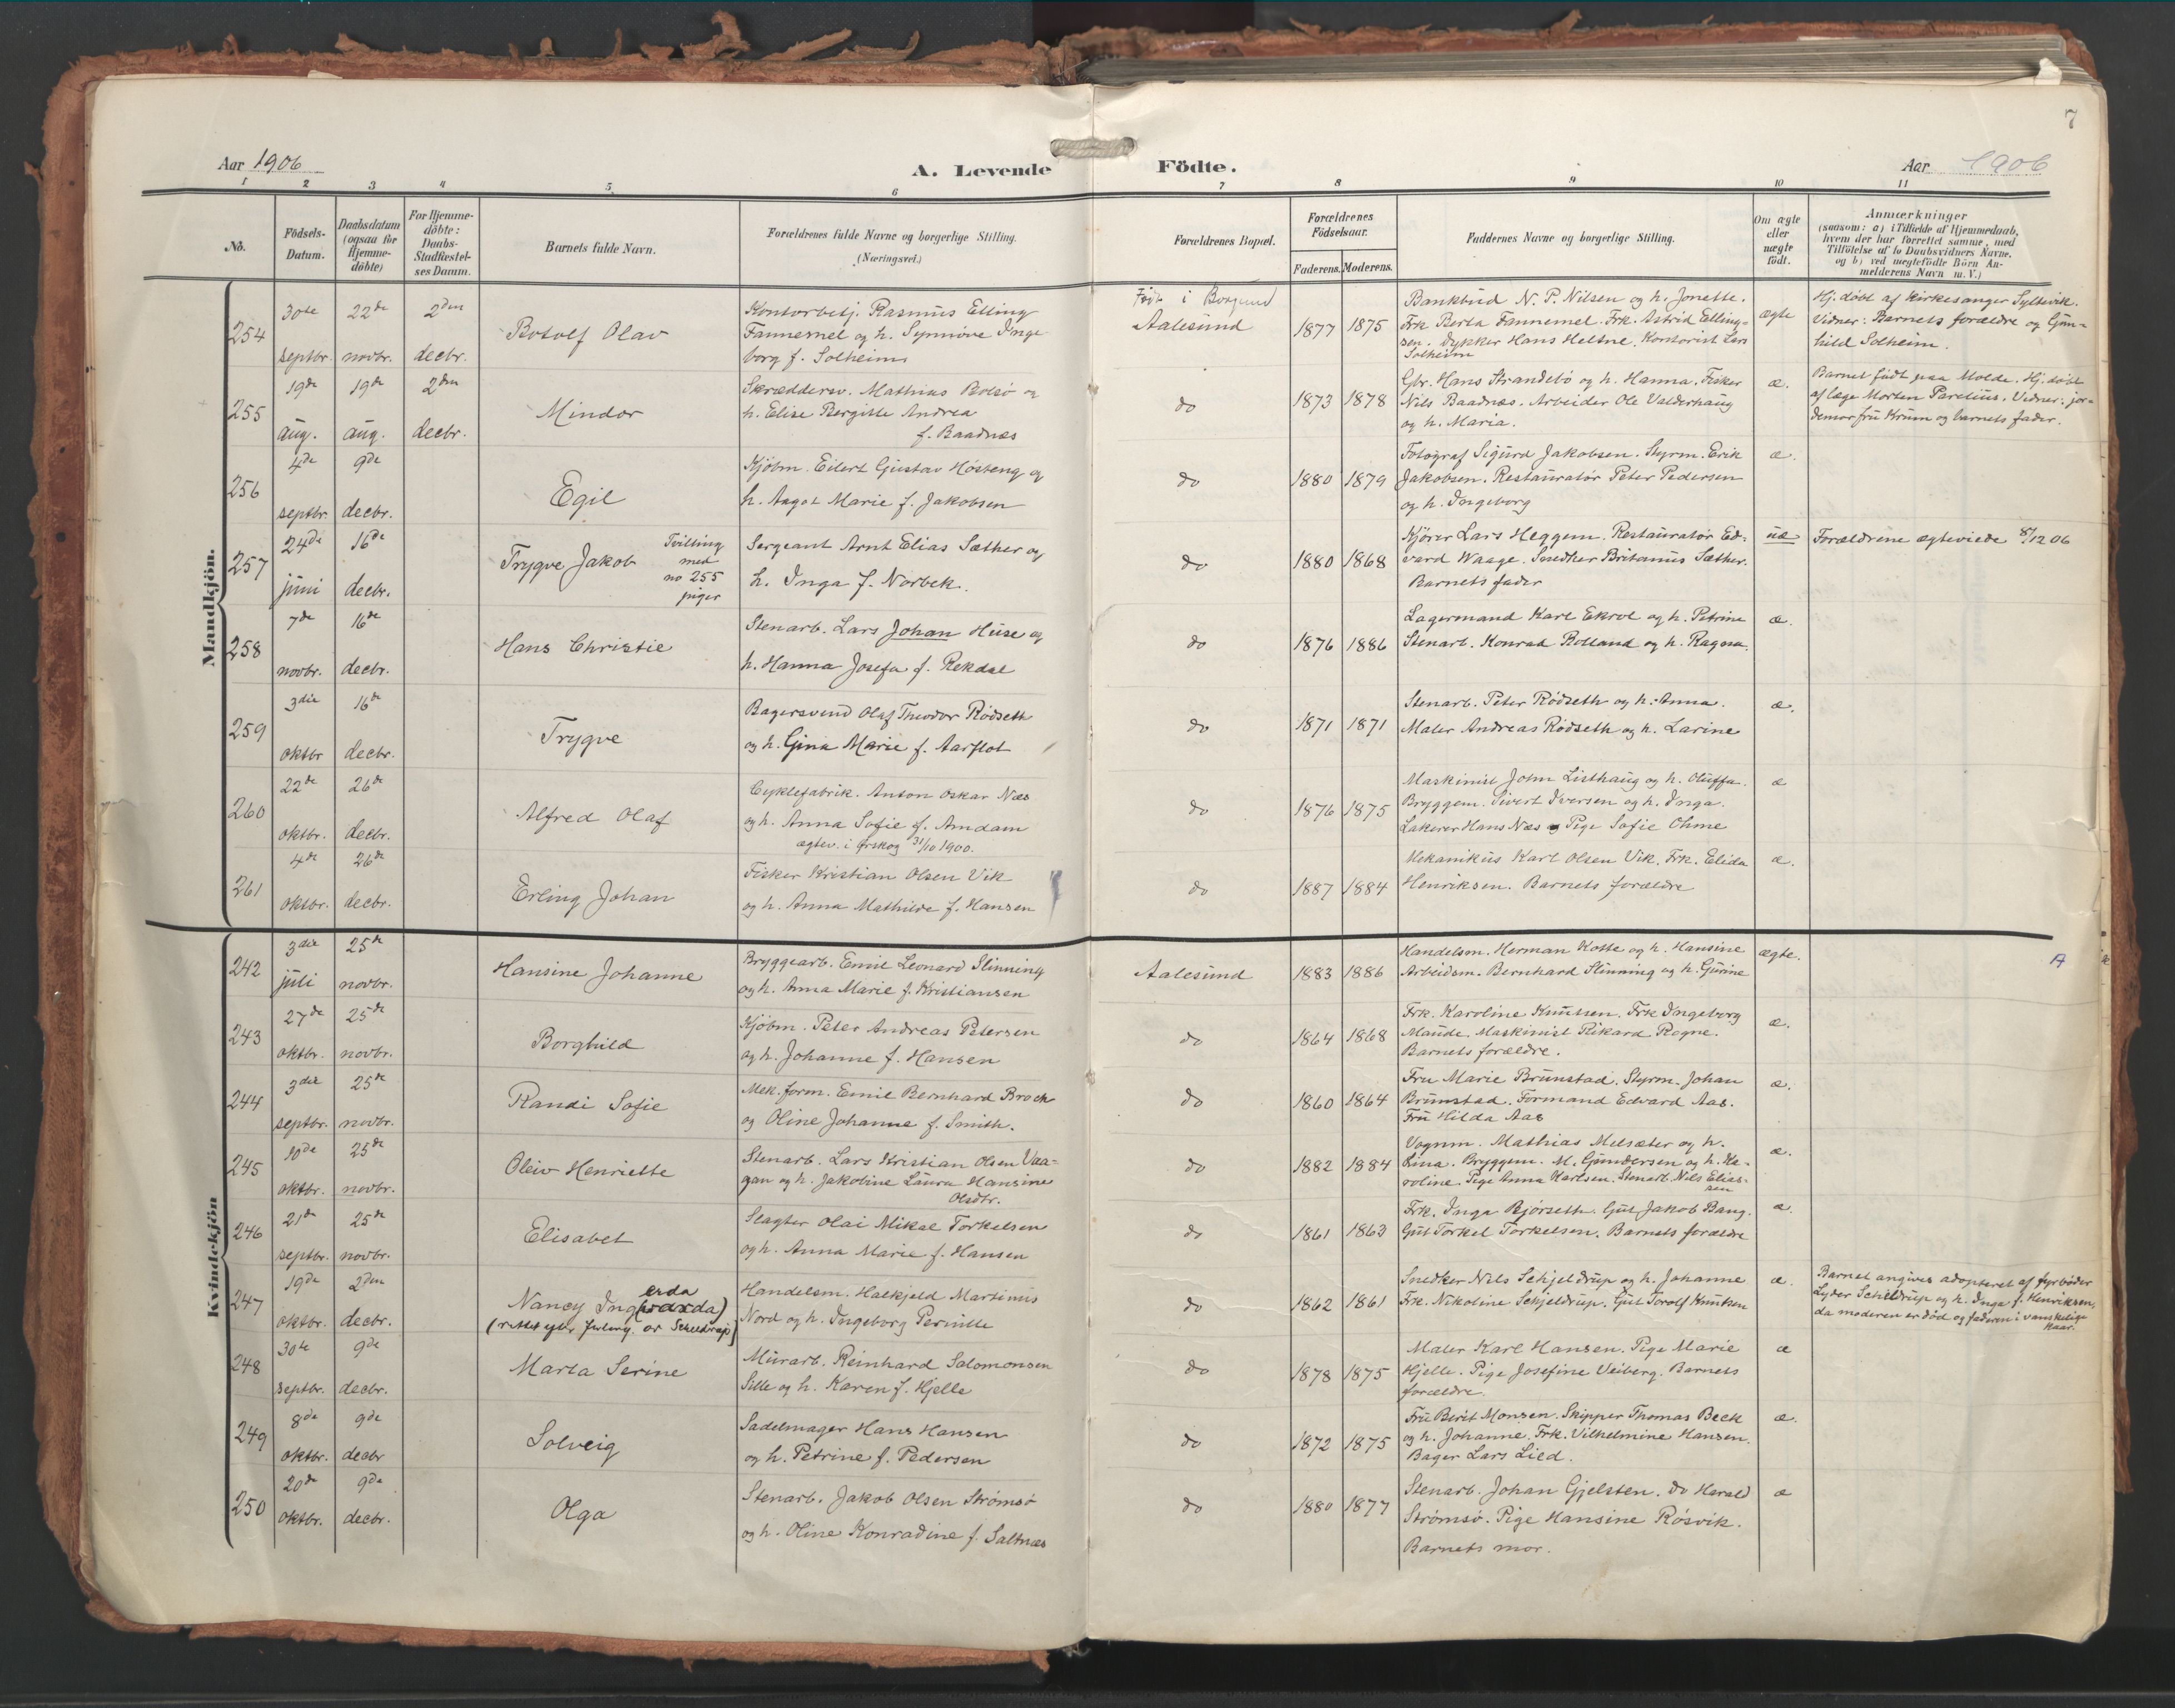 7
Aar 1906
A. Levende Födte.
Aar 1906
1 2 3 4 5 6 7 8 9 10 11
No.
Födsels-
Datum.
Daabsdatum
(ogsaa for
Hjemme-
döbte)
For Hjemme-
döbte:
Daabs-
Stadfæstel-
ses Datum.
Barnets fulde Navn.
Forældrenes fulde Navne og borgerlige Stilling.
(Næringsvei.)
Forældrenes Bopæl.
Forældrenes
Födselsaar.
Faderens. Moderens.
Faddernes Navne og borgerlige Stilling.
Om ægte
eller
uægte
født.
Anmærkninger
(saasom: a) i Tilfælde af Hjemmedaab,
hvem der har forrettet samme, med
Tilföielse af to Daabsvidners Navne.
og b) ved uægtefödte Börn An-
melderens Navn m. V.)
Mandkjön.
254
30te
septbr.
22de
novbr.
2den
decbr.
Botolf Olav
Kontorbetj. Rasmus Elling
Fannemel og h. Synnöve Inge
borg f. Solheim
Født i Borgund
Aalesund
1877 1875
Bankbud N. P. Nilsen og h. Jonette.
Frk Berta Fannemel. Frk. Astrid Elling-
sen. Dykker Hans Heltne. Kontorist Lars
Solheim
ægte
Hj. døbt af Kirkesanger Syltevik.
Vidner: Barnets forældre og Gun-
hild Solheim.
255
19de
aug.
19de
aug.
2den
decbr.
Mindor
Skræddersv. Mathias Bolsø og
h. Elise Bergitte Andrea
f. Baadnæs
do
1873 1878
Gbr. Hans Strandebö og h. Hanna. Fisker
Nils Baadnæs. Arbeider Ole Valderhaug
og h. Maria.
æ.
Barnet født paa Molde. Hj. døbt
af læge Morten Parelius. Vidner: jor-
demor fru Krum og barnets fader.
256
4de
septbr.
9de
decbr.
Egil
Kjöbm. Eilert Gustav Hösteng og
h. Aagot Marie f. Jakobsen
do
1880 1879
Fotograf Sigurd Jakobsen. Styrm. Erik
Jakobsen. Restauratør Peter Pedersen
og h. Ingeborg
æ.
257
24de
juni
16de
decbr.
Trygve Jakob
Tvilling
med
no 255
piger
Sergeant Arnt Elias Sæther og
h. Inga f. Norbek.
do
1880 1868
Kjörer Lars Heggem. Restauratør Ed-
vard Waage. Snedker Britanus Sæther.
Barnets fader
uæ
Forældrene ægteviede 8/12 06
258
7de
novbr.
16de
decbr.
Hans Christie
Stenarb. Lars Johan Huse og
h. Hanna Josefa f. Rekdal
do
1876 1886
Lagermand Karl Ekrol og h. Petrine
Stenarb. Konrad Rolland og h. Ragna.
æ.
259
3die
oktbr
16de
decbr.
Trygve
Bagersvend Olaf Theodor Rödseth
og h. Gina Marie f. Aarflot
do
1871 1871
Stenarb. Peter Rödseth og h. Anna.
Maler Andreas Rödseth og h. Larine
æ.
260
22de
oktbr.
26de
decbr.
Alfred Olaf
Cyklefabrik. Anton Oskar Næs
og h. Anna Sofie f. Amdam
ægtev. i Ørskog 31/10 1900.
do
1876 1875
Maskinist John Listhaug og h. Oluffa.
Bryggem. Sivert Iversen og h. Inga.
Lakerer Hans Næs og Pige Sofie Ohme
æ
261
4de
oktbr.
26de
decbr.
Erling Johan
Fisker Kristian Olsen Vik
og h. Anna Mathilde f. Hansen
do
1887 1884
Mekanikus Karl Olsen Vik. Frk. Elida
Henriksen. Barnets forældre
æ.
Kvindekjön
242
3die
juli
25de
novbr.
Hansine Johanne
Bryggearb. Emil Leonard Slinning
og h. Anna Marie f. Kristiansen
Aalesund
1883 1886
Handelsm. Herman Kotte og h. Hansine
Arbeidsm. Bernhard Slinning og h. Gurine
ægte.
243
27de
oktbr.
25de
novbr.
Borghild
Kjöbm. Peter Andreas Petersen
og h. Johanne f. Hansen
do
1864 1868
Frk. Karoline Knutsen. Frk Ingeborg
Maude. Maskinist Rikard Rogne.
Barnets forældre.
æ.
244
3die
septbr.
25de
novbr.
Randi Sofie
Mek. form. Emil Bernhard Broch
og Oline Johanne f. Smith.
do
1860 1864
Fru Marie Brunstad. Styrm. Johan
Brunstad. Formand Edvard Aas.
Fru Hilda Aas
æ.
245
10de
oktbr.
25de
novbr.
Oleiv Henriette
Stenarb. Lars Kristian Olsen Vaa-
gan og h. Jakobine Laura Hansine
Olsdtr.
do
1882 1884
Vognm. Mathias Melsæter og h.
Lina. Bryggem. M. Gundersen og h. Ka-
roline. Pige Anna Karlsen. Stenarb. Nils Elias-
sen
æ.
246
21de
septbr.
25de
novbr.
Elisabet
Slagter Olai Mikal Torkelsen
og h. Anna Marie f. Hansen
do
1861 1863
Frk. Inga Bjørseth. Gut Jakob Bang.
Gut Torkel Torkelsen. Barnets forældre
æ.
247
19de
oktbr.
2den
decbr.
Nancy Ing
erda
Handelsm. Halkjeld Martinus
Nord og h. Ingeborg Pernille
do
1862 1861
Snedker Nils Schjeldrup og h. Johanne
Frk. Nikoline Schjeldrup. Gut Torolf Knutsen
æ.
Barnet angives adopteret af fyrbøder
Lyder Scheldrup og h. Inga f. Henriksen,
da moderen er død og faderen i vanskelige
kaar.
248
30te
septbr.
9de
decbr.
Marta Serine
Murarb. Reinhard Salomonsen
Sille og h. Karen f. Hjelle
do
1878 1875
Maler Karl Hansen. Pige Marie
Hjelle. Pige Josefine Veiberg. Barnets
forældre.
æ
249
8de
oktbr.
9de
decbr
Solveig
Sadelmager Hans Hansen
og h. Petrine f. Pedersen
do
1872 1875
Fru Berit Monsen. Skipper Thomas Beck
og h. Johanne. Frk. Vilhelmine Hansen.
Bager Lars Lied.
æ.
250
20de
oktbr.
9de
decbr.
Olga
Stenarb. Jakob Olsen Strömsö
og h. Oline Konradine f. Saltnæs
do
1880 1877
Stenarb. Johan Gjelsten. Do Harald
Strømsö. Pige Hansine Rösvik.
Barnets mor.
æ